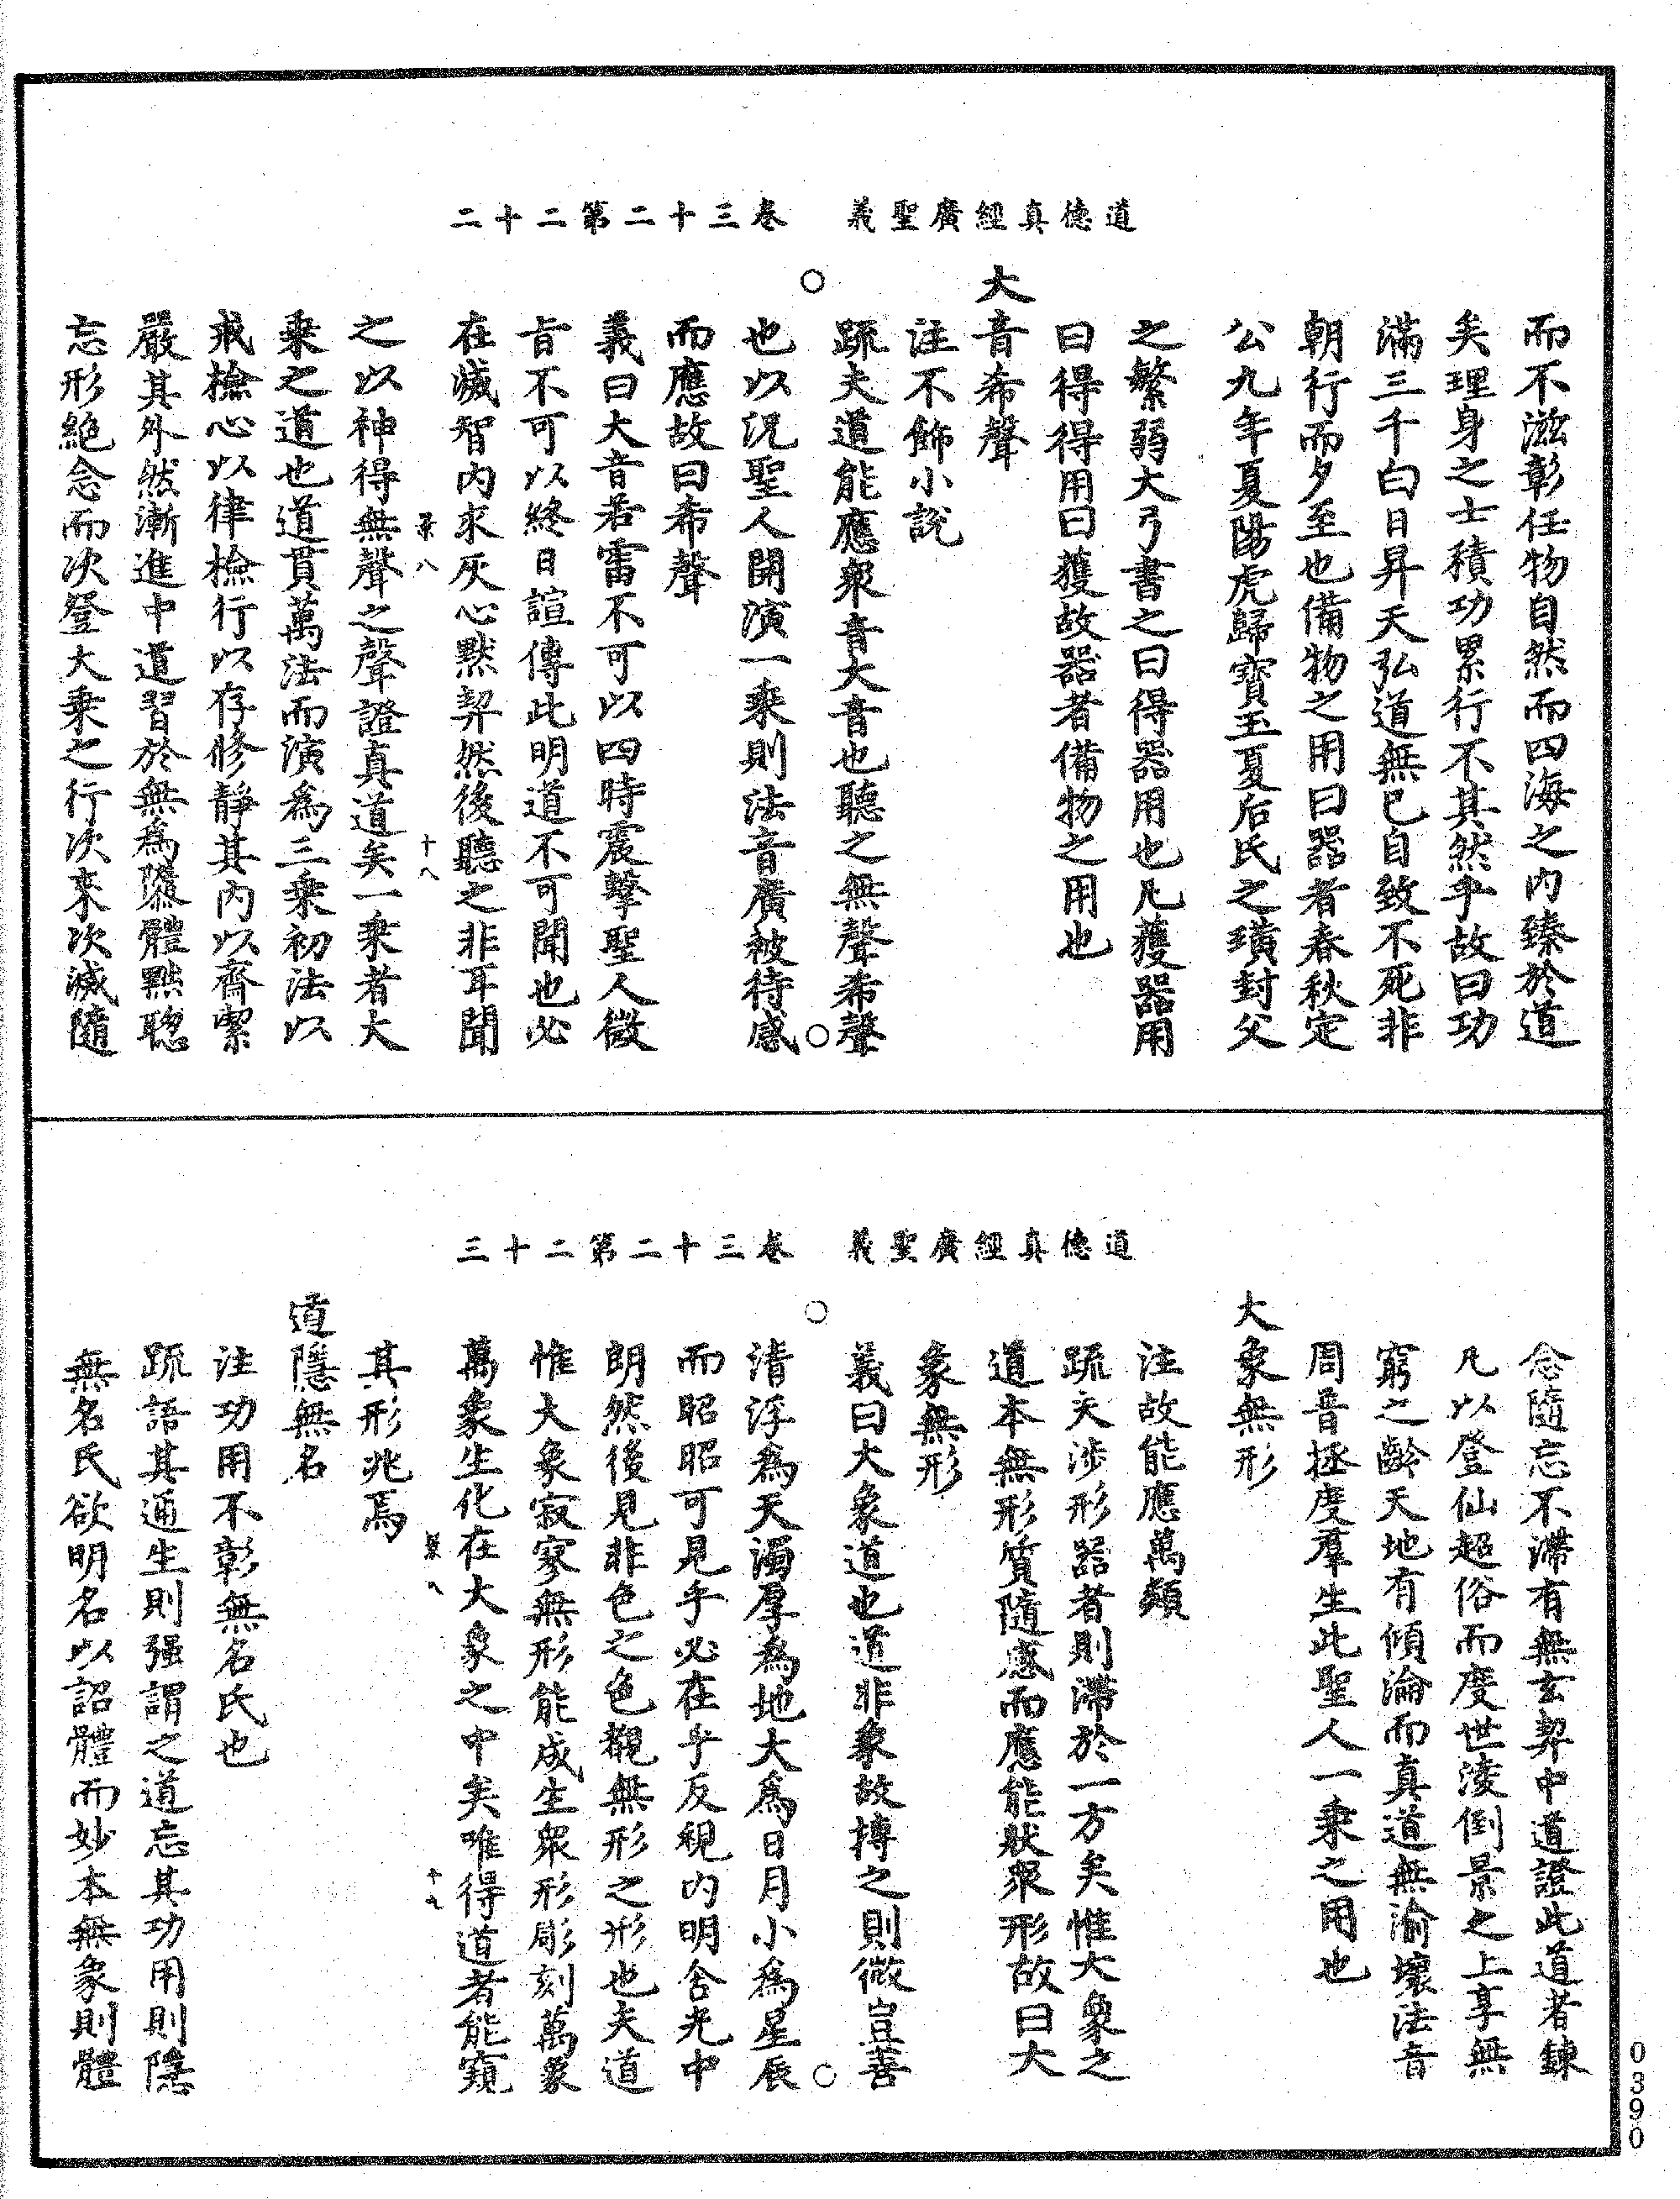 道德真經廣聖義　卷三十二第二十二
而不滋彰任物自然而四海之內臻於道
矣理身之士積功累行不其然乎故曰功
滿三千白日昇天弘道無已自致不死非
朝行而夕至也備物之用曰器者春秋定
公九年夏陽虎歸寶玉夏后氏之璜封父
之繁弱大弓書之曰得器用也凡獲器用
曰得得用曰獲故器者備物之用也
大音希聲
注不飾小說
疏夫道能應衆音大音也聽之無聲希聲
也以況聖人開演一乘則法音廣被待感
而應故曰希聲
義曰大音若雷不可以四時震擊聖人微
旨不可以終日諠傳此明道不可聞也必
在滅智內求灰心默契然後聽之非耳聞
之以神得無聲之聲證真道矣一乘者大
乘之道也道貫萬法而演爲三乘初法以
戒檢心以律檢行以存修靜其內以齋潔
嚴其外然漸進中道習於無爲隳體黜聰
忘形絕念而次登大乘之行次來次滅隨
十八
道德真經廣聖義　卷三十二第二十三
念隨忘不滯有無玄契中道證此道者鍊
凡以登仙超俗而度世淩倒景之上享無
窮之齡天地有傾淪而真道無渝壞法音
周普拯度羣生此聖人一乘之用也
大象無形
注故能應萬類
疏夫涉形器者則滯於一方矣惟大象之
道本無形質隨感而應能狀衆形故曰大
象無形
義曰大象道也道非象故搏之則微豈善
清浮爲天濁厚為地大爲日月小爲星辰
而昭昭可見乎必在乎反視內明含光中
朗然後見非色之色覩無形之形也夫道
惟大象寂寥無形能成生衆形彫刻萬象
萬象生化在大象之中矣唯得道者能窺
其形兆焉
道隱無名
注功用不彰無名氏也
疏語其通生則强謂之道忘其功用則隱
無名氏欲明名以詔體而妙本無象則體
十九
0390